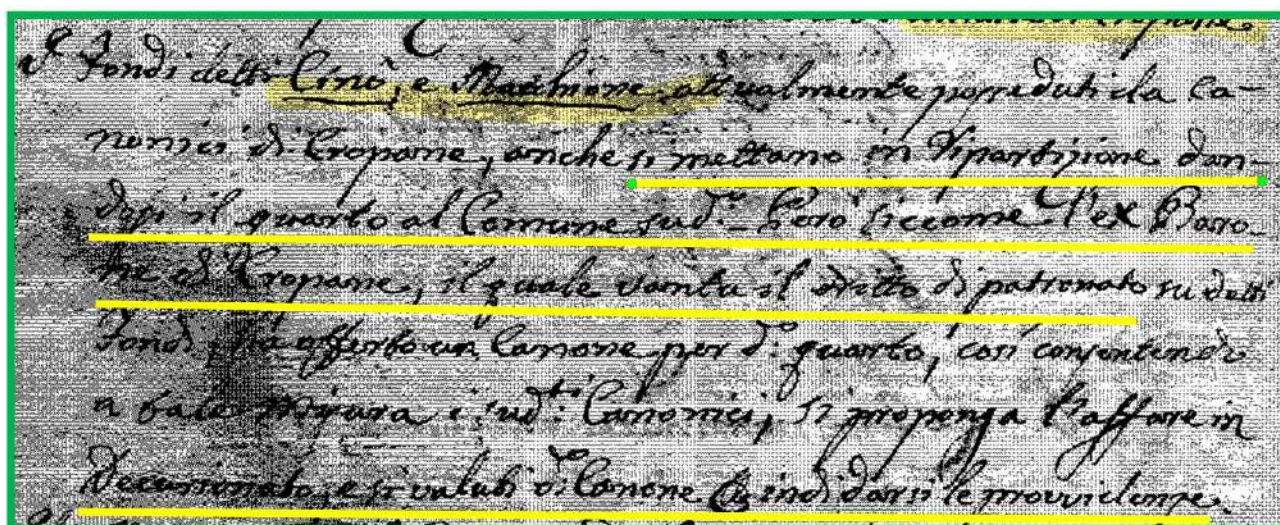 Cropane
I fondi detti Cinò, e Marchione attualmente posseduti da Ca-
nonici di Cropane, anche si mettano in ripartizione dan-
dosi il quarto al Comune sud.° Però siccome l'ex Baro-
ne di Cropane, il quale vanta il dritto di patronato su detti
fondi, ha offerto un Canone per d.° quarto, così consentendo
a tale misura i sud.ti Canonici, si proponga l'affare in
Decurionato, e si valuti d.° Canone
darsi le providenze.